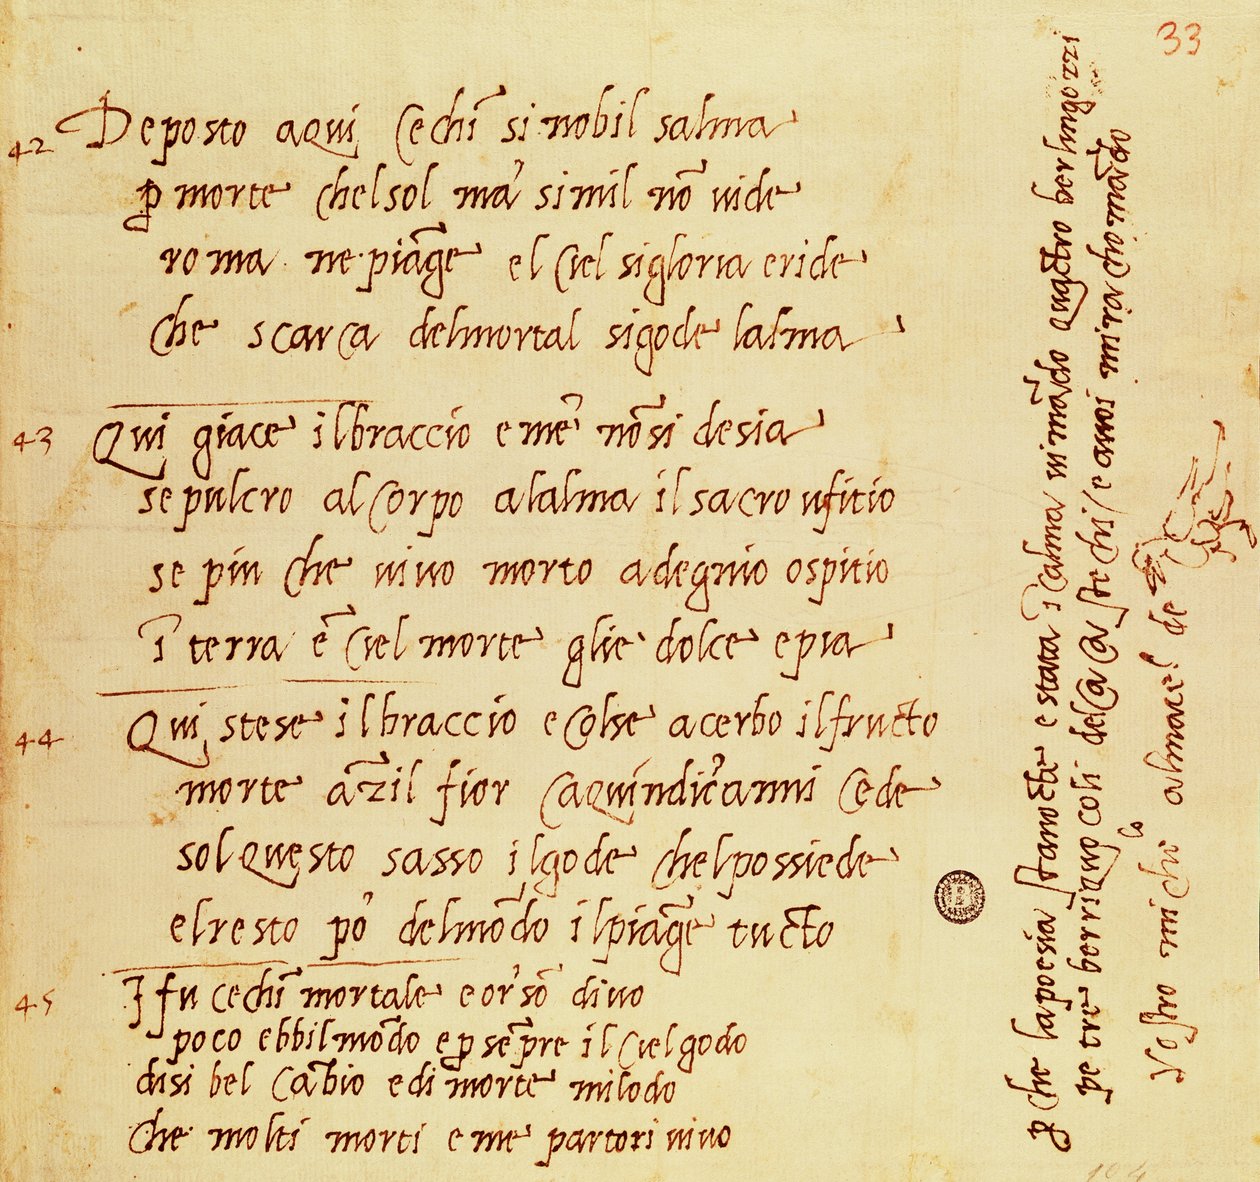 33
42 Deposto a qui cechĩ si nobil salma
p morte chel sol ma' simil nõ vide
roma ne piãge el ciel si gloria e ride
che scarca del mortal si gode lalma
43 Qui giace il braccio e me' nõ si desia
sepulcro al corpo a lalma il sacro ufitio
se piu che vivo morto a degnio ospitio
ĩ terra ẽ ciel morte glie dolce e pia
44 Qui stese il braccio e colse acerbo il fructo
morte ãzi il fior ca quindic'anni cede
sol questo sasso il gode chel possiede
el resto po' del mõdo il piãge tucto
45 I fu cechĩ mortale e or sõ divo
poco ebbi il mõdo e p sẽpre il ciel godo
di si bel cãbio e di morte mi lodo
che molti morti e me partori vivo
p che la poesia stanocte e stata ĩ calma vi mãdo quactro berlingozzi
pe tre berriquocoli del
a voi mi rachomãdo
Vostro michel al macel de
104